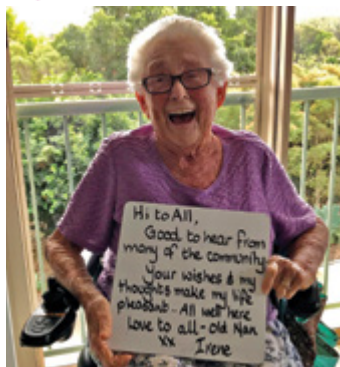 Hi to All,
Good to hear from
many of the community
your wishes & my
thoughts make my life
pleasant - All well here
Love to all - old Nan
xx Irene